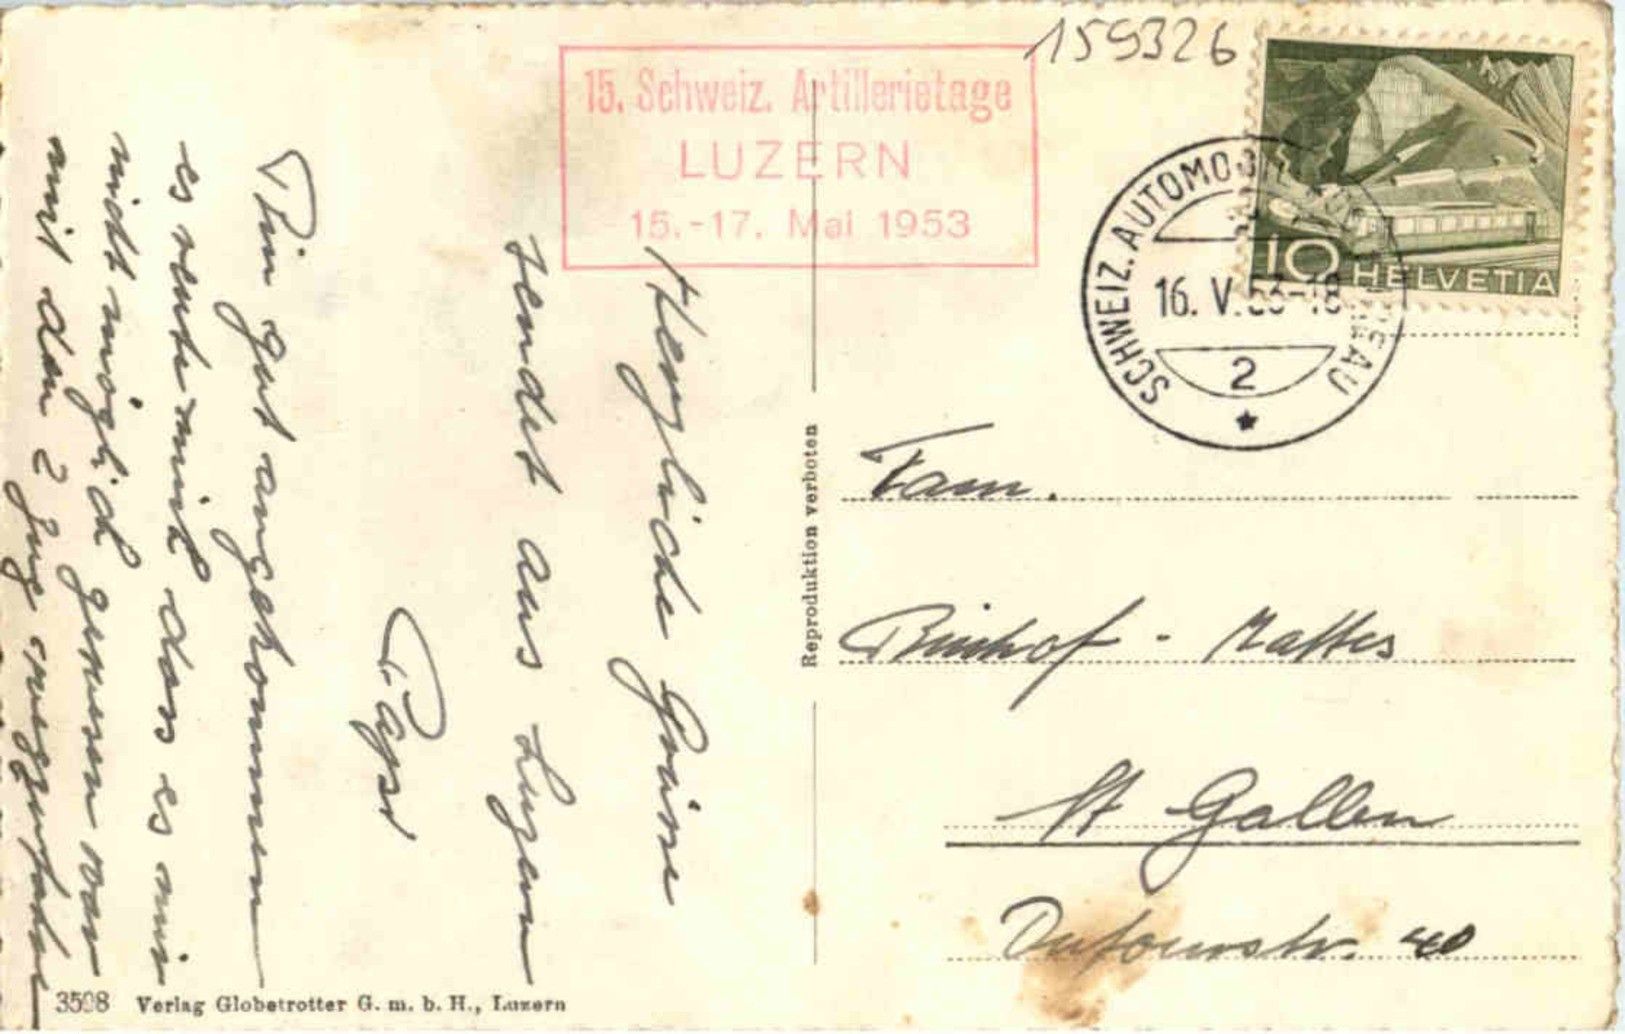 159326
15. Schweiz. Artillerietage
LUZERN
15.-17. Mai 1953
10 HELVETIA
SCHWEIZ. AUTOMOBIL
16. V. 53-18
2
Herzliche Grüsse
sendet aus Luzern
Papi
Bin gut angekommen
es reute mich dass es mir
nicht möglich gewesen war
mit dem 2 Zug
Reproduktion verboten
Fam.
Mattes
St Gallen
Dufourstr. 40
3598 Verlag Globetrotter G. m. b. H., Luzern